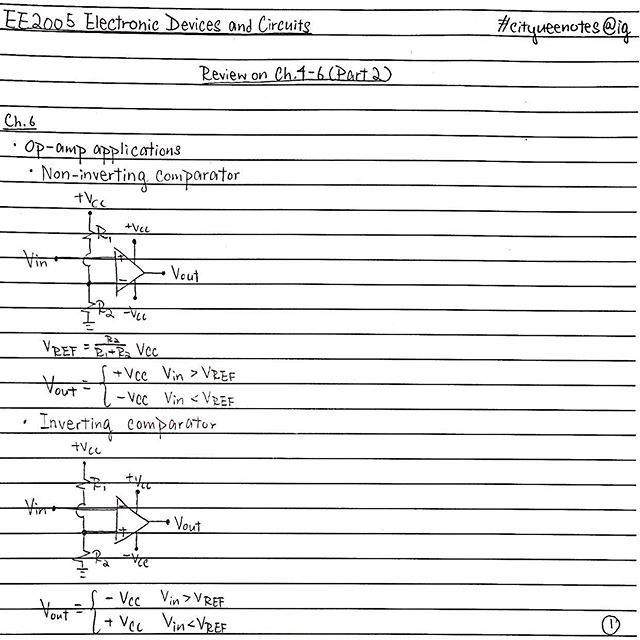 EE2005 Electronic Devices and Circuits #cityueenotes@ig
Review on Ch.4-6 (Part 2)
Ch.6
· Op-amp applications
· Non-inverting comparator
+Vcc
R1 +Vcc
Vin + Vout
−
R2 -Vcc
VREF = R2/(R1+R2) Vcc
Vout = { +Vcc Vin > VREF
-Vcc Vin < VREF
· Inverting comparator
+Vcc
R1 +Vcc
Vin − Vout
+
R2 -Vcc
Vout = { -Vcc Vin > VREF
+Vcc Vin < VREF
1